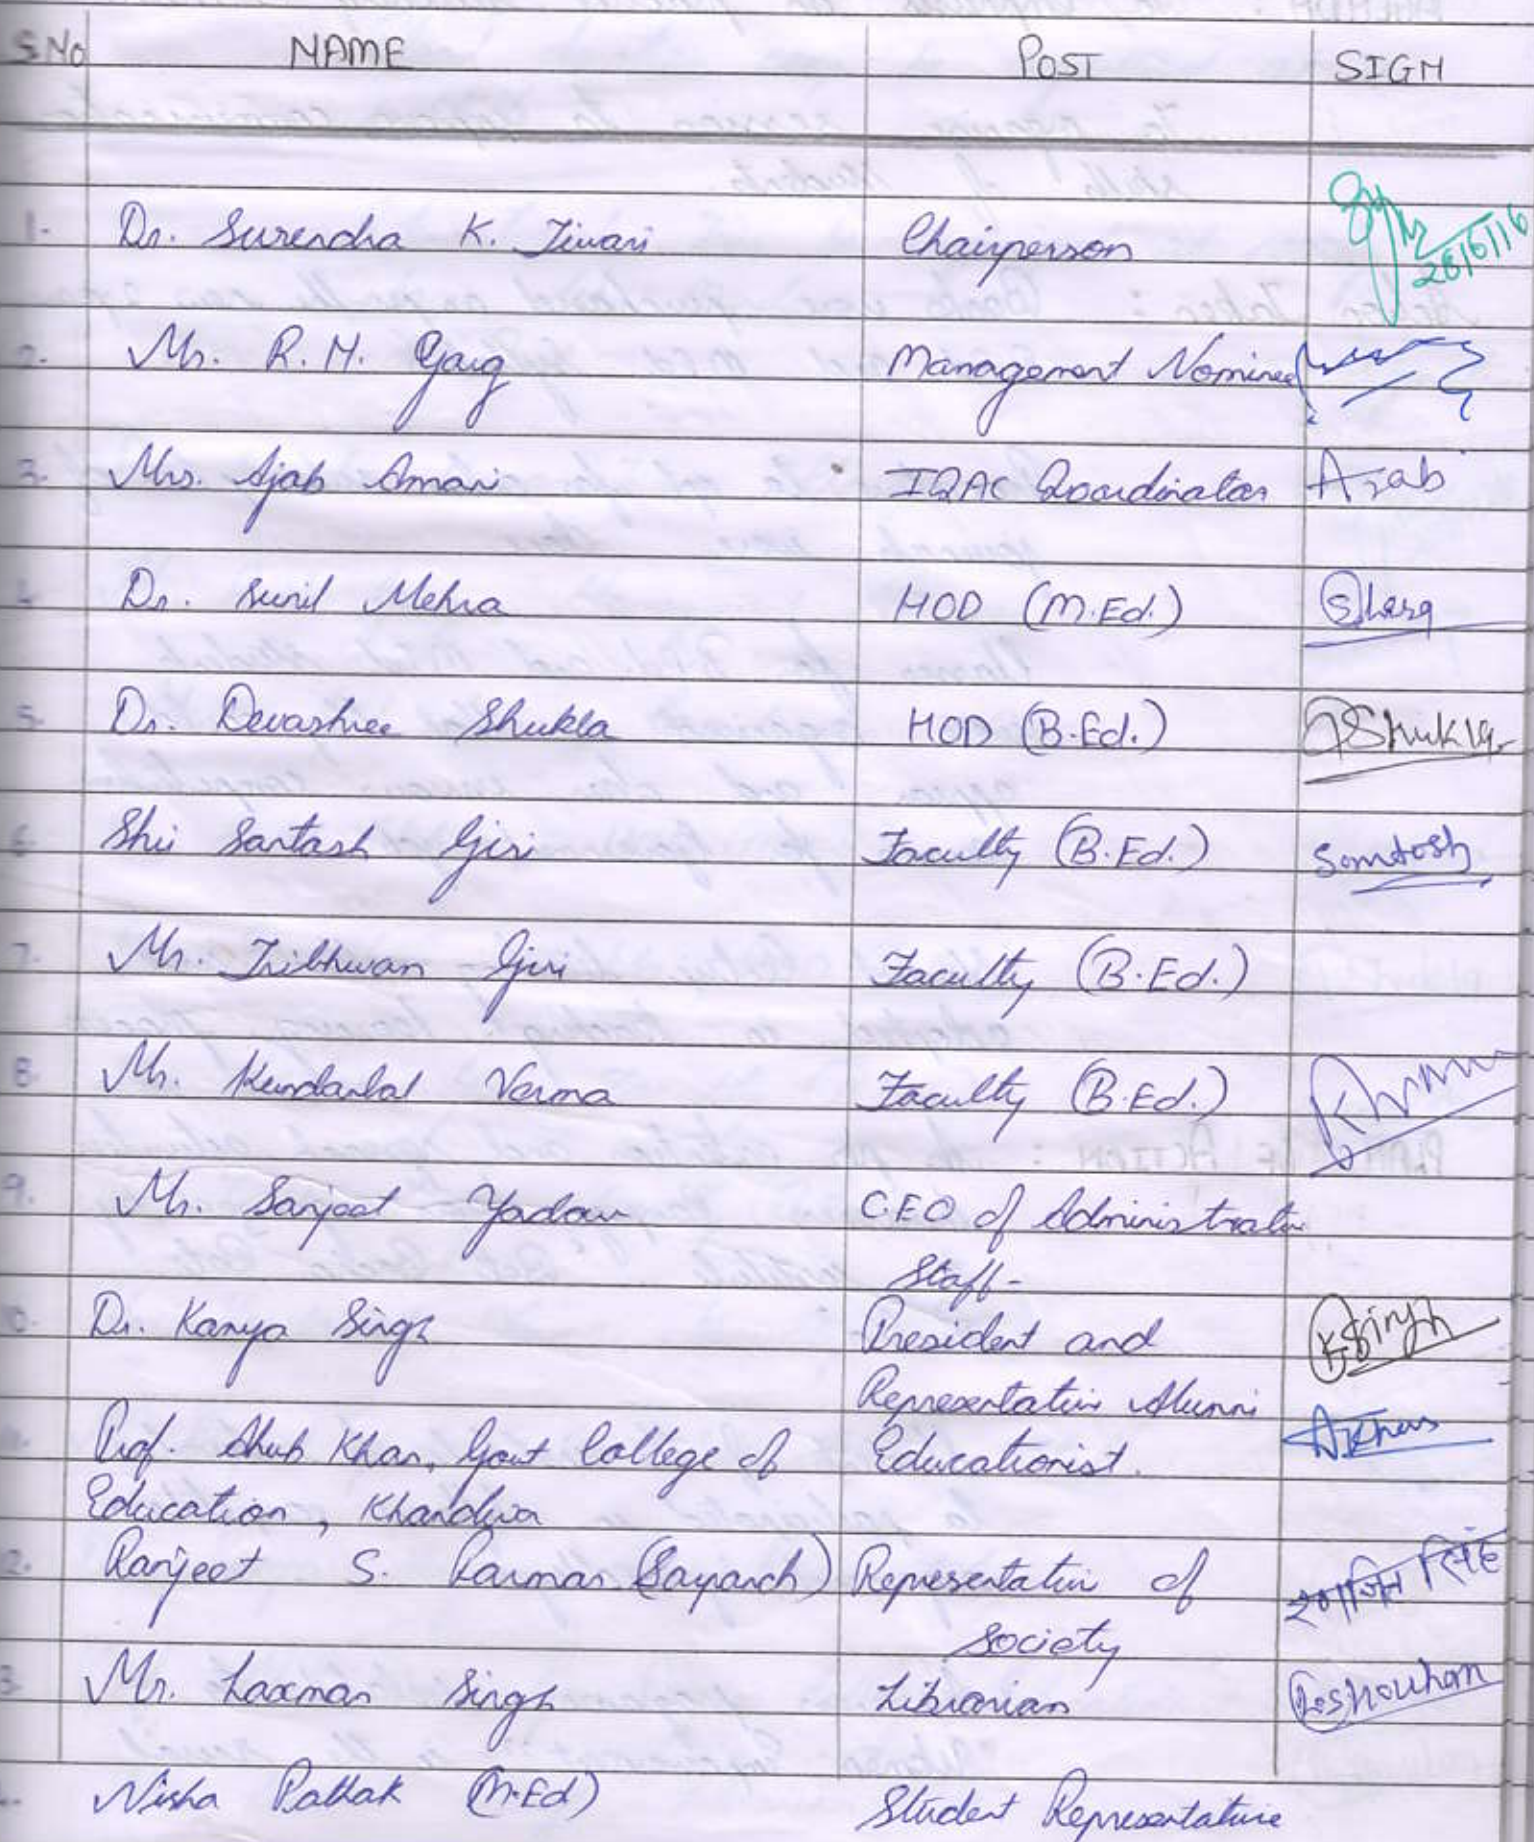 S.No NAME POST SIGN
1. Dr. Surendra K. Tiwari Chairperson 28/6/16
2. Mr. R. N. Garg Management Nominee
3. Mrs. Ajab Amari IQAC Coordinator Ajab
4. Dr. Sunil Mehra HOD (M.Ed.)
5. Dr. Devashree Shukla HOD (B.Ed.) DShukla
6. Shri Santosh Giri Faculty (B.Ed.) Santosh
7. Mr. Tribhuwan Giri Faculty (B.Ed.)
8. Mr. Kundanlal Verma Faculty (B.Ed.)
9. Mr. Sanjeet Yadav C.EO of Administrativ
Staff-
10. Dr. Kanya Singh President and KSingh
Representativ Alumni
11. Prof. Ahub Khan, Govt College of Educationist. AKhan
Education, Khandwa
12. Ranjeet S. Parmar (Sarpanch) Representativ of रणजित सिंह
Society
13. Mr. Laxman Singh Librarian
Nisha Pathak (M.Ed) Student Representative